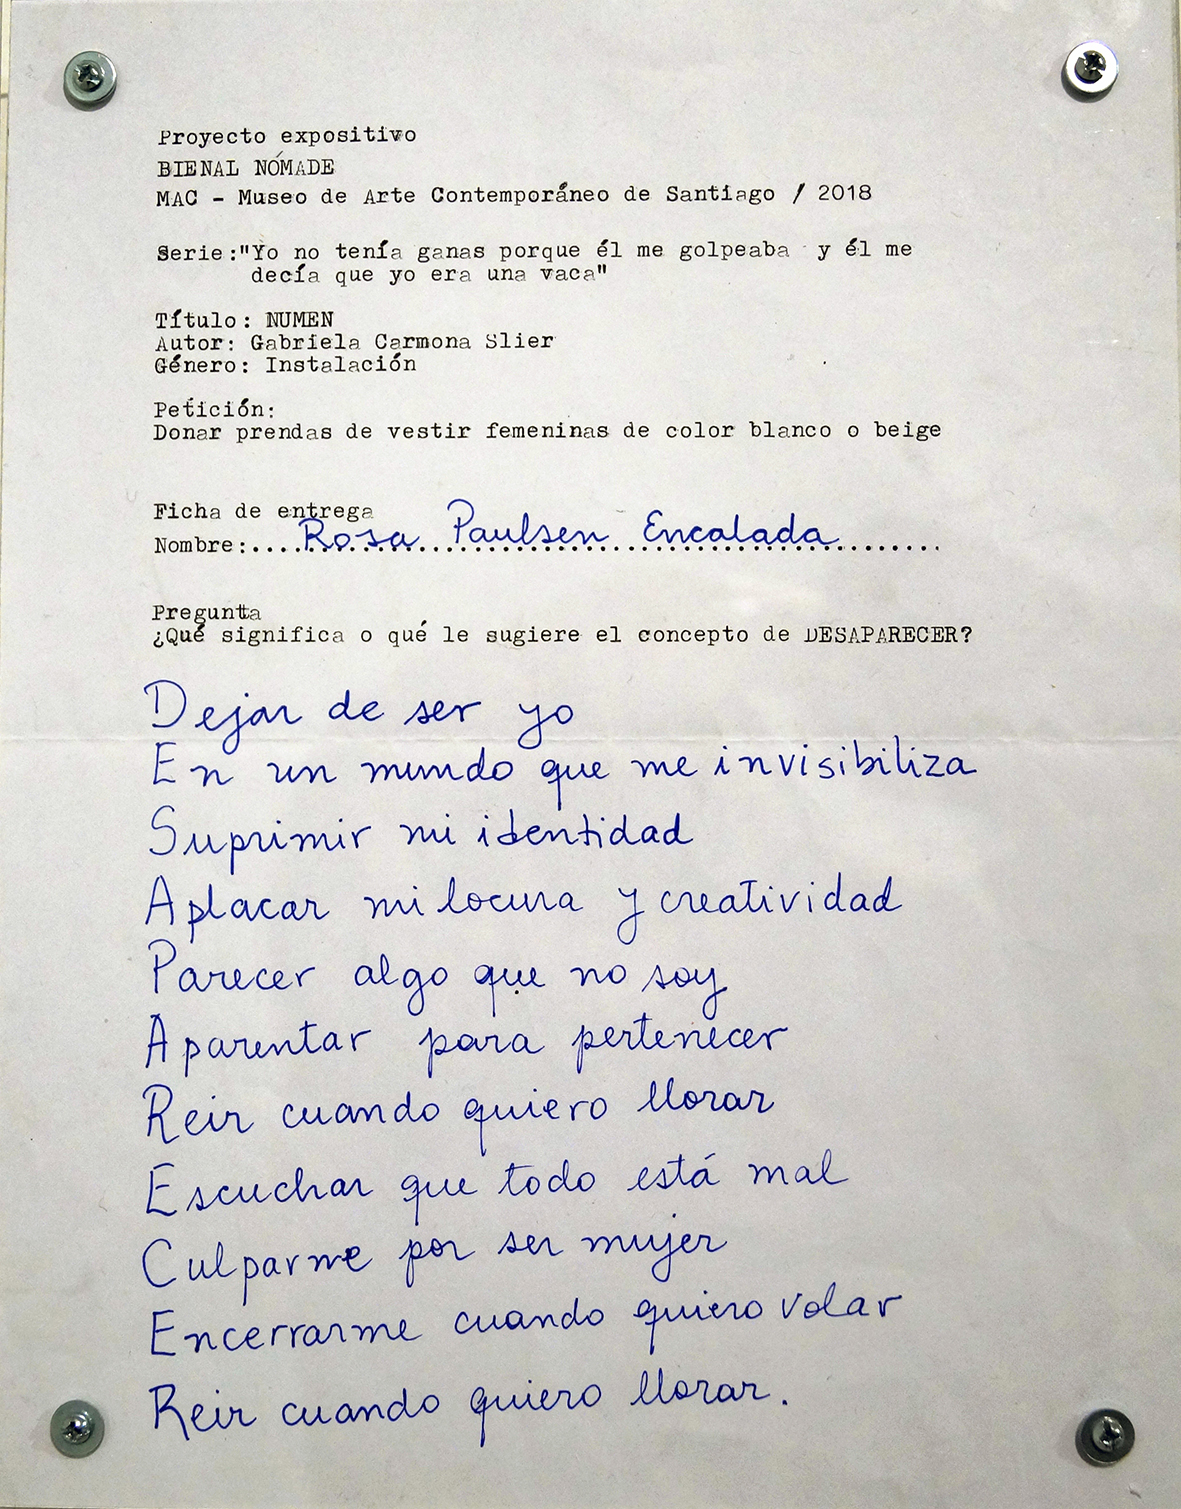 Proyecto expositivo
BIENAL NÓMADE
MAC - Museo de Arte Contemporáneo de Santiago / 2018
Serie:"Yo no tenía ganas porque él me golpeaba y él me
decía que yo era una vaca"
Título: NUMEN
Autor: Gabriela Carmona Slier
Género: Instalación
Petición:
Donar prendas de vestir femeninas de color blanco o beige
Ficha de entrega
Nombre:.... Rosa Paulsen Encalada
Pregunta
¿Qué significa o qué le sugiere el concepto de DESAPARECER?
Dejar de ser yo
En un mundo que me invisibiliza
Suprimir mi identidad
Aplacar mi locura y creatividad
Parecer algo que no soy
Aparentar para pertenecer
Reir cuando quiero llorar
Escuchar que todo está mal
Culparme por ser mujer
Encerrarme cuando quiero volar
Reir cuando quiero llorar.